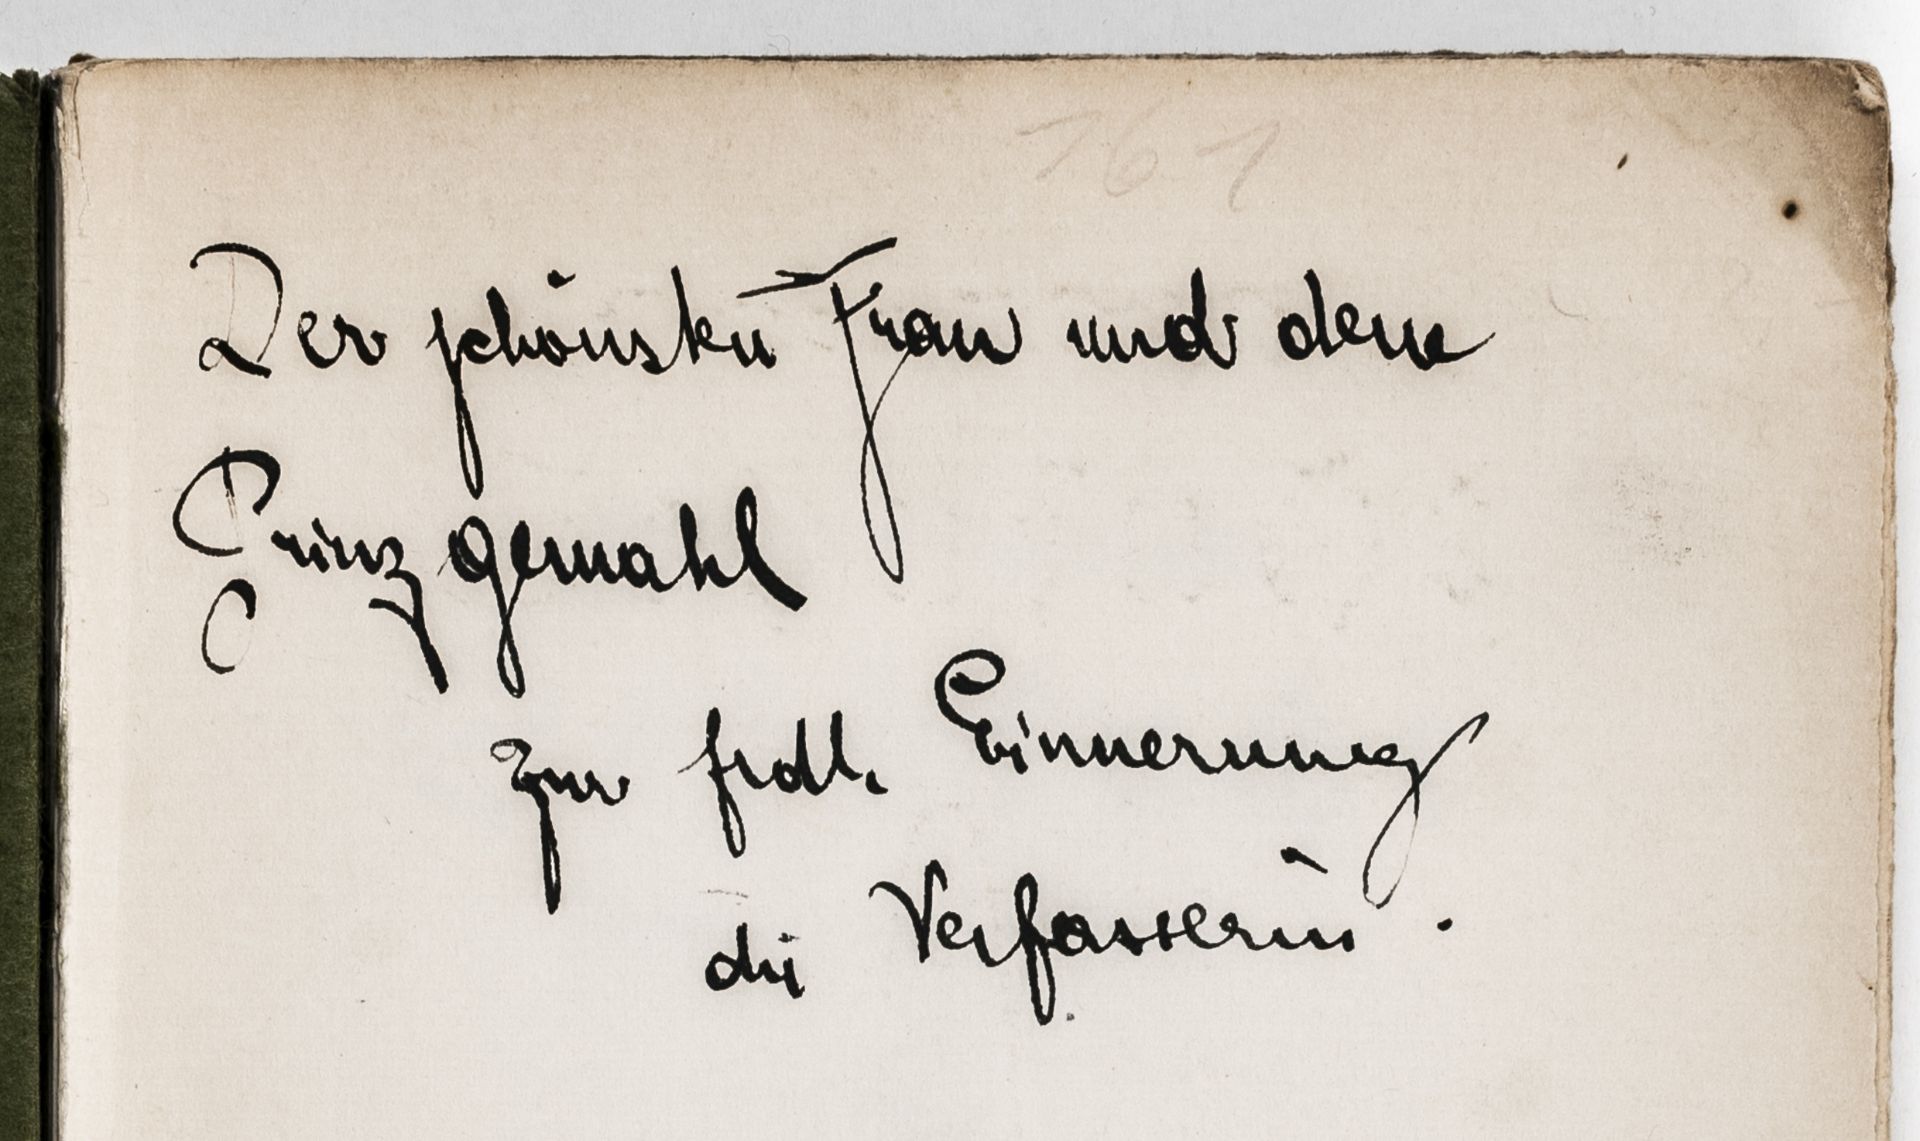 161
Der schönsten Frau und dem
Prinzgemahl
zur frdl. Erinnerung
die Verfasserin.